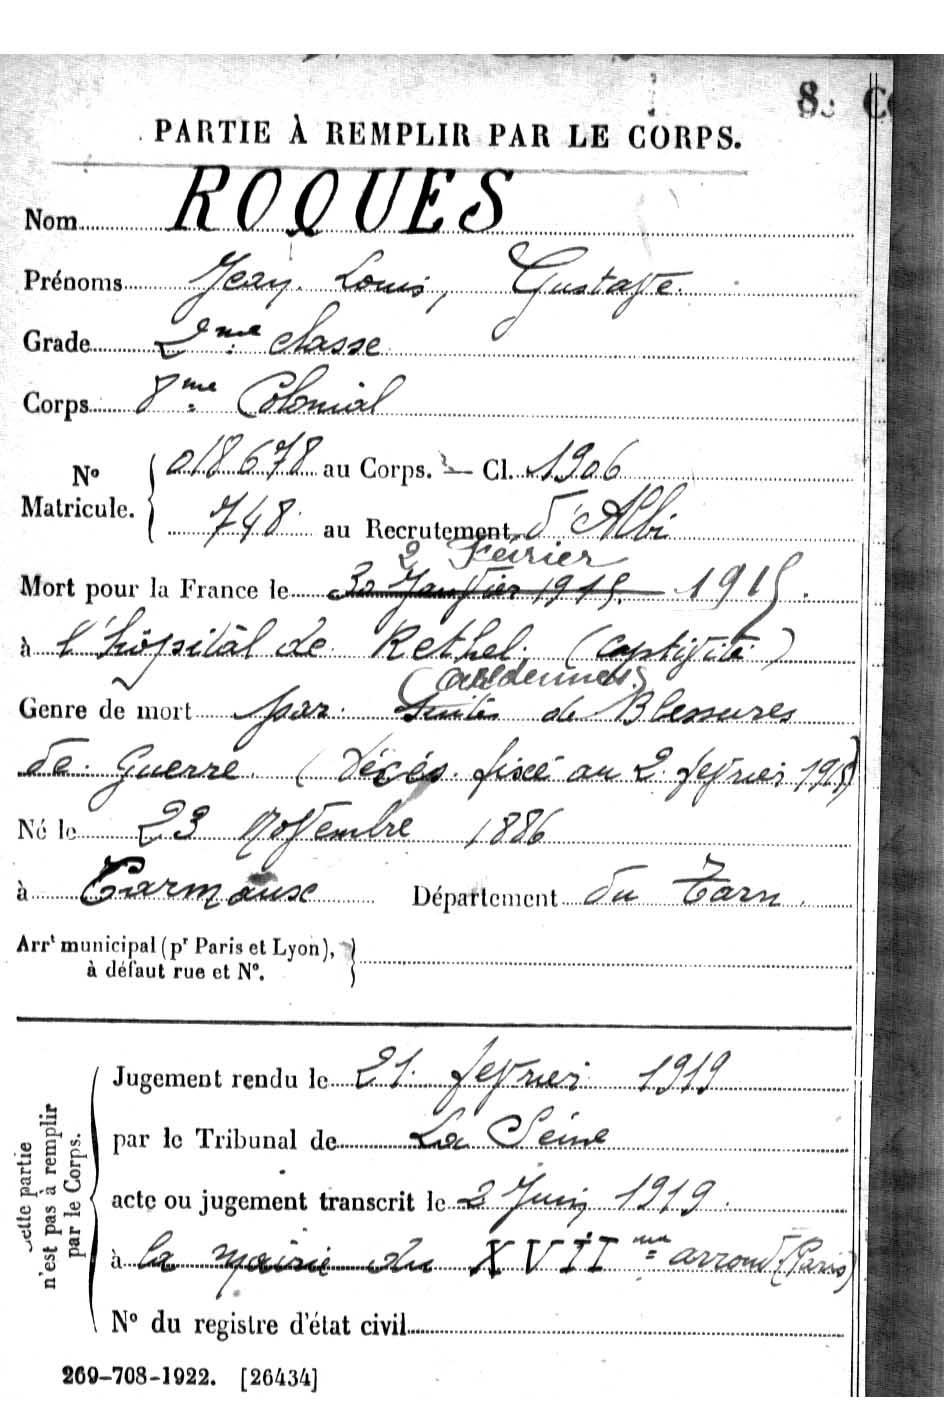 8. C
PARTIE À REMPLIR PAR LE CORPS.
Nom ROQUES
Prénoms Jean, Louis, Gustave.
Grade 2ème classe
Corps 8me Colonial
No Matricule. { 018678 au Corps. — Cl. 1906
748 au Recrutement d'Albi
2 Février
Mort pour la France le 30 Janvier 1915. 1915.
à l'hôpital de Rethel. (captivité)
(Ardennes)
Genre de mort par suites de Blessures
de Guerre. (Décès fixé au 2 février 1915)
Né le 23 Novembre 1886
à Carmaux Département du Tarn.
Arrt municipal (pr Paris et Lyon),
à défaut rue et No. }
Cette partie
n'est pas à remplir
par le Corps.
Jugement rendu le 21 février 1919
par le Tribunal de La Seine
acte ou jugement transcrit le 2 Juin 1919.
à la mairie du XVIIme arrond (Paris)
No du registre d'état civil
269-708-1922. [26434]